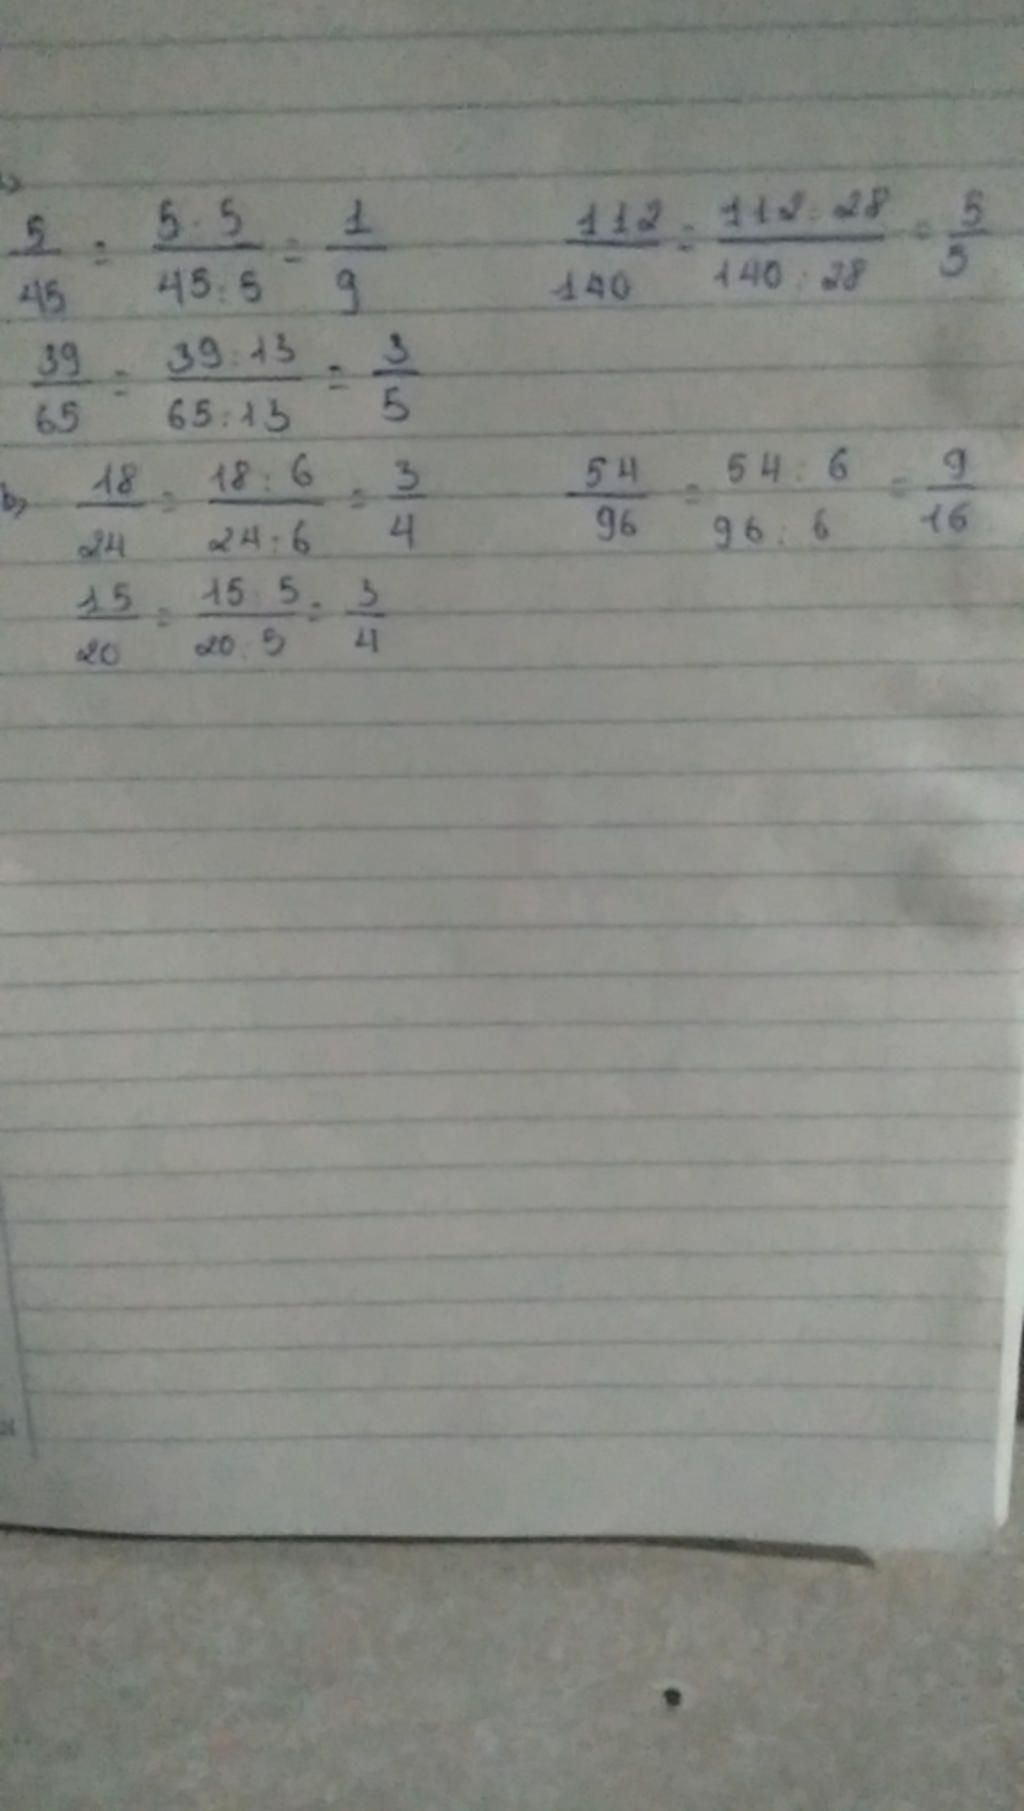 5/45 = 5:5/45:5 = 1/9 112/140 = 112:28/140:28 = 5/5
39/65 = 39:13/65:13 = 3/5
b) 18/24 = 18:6/24:6 = 3/4 54/96 = 54:6/96:6 = 9/16
15/20 = 15:5/20:5 = 3/4